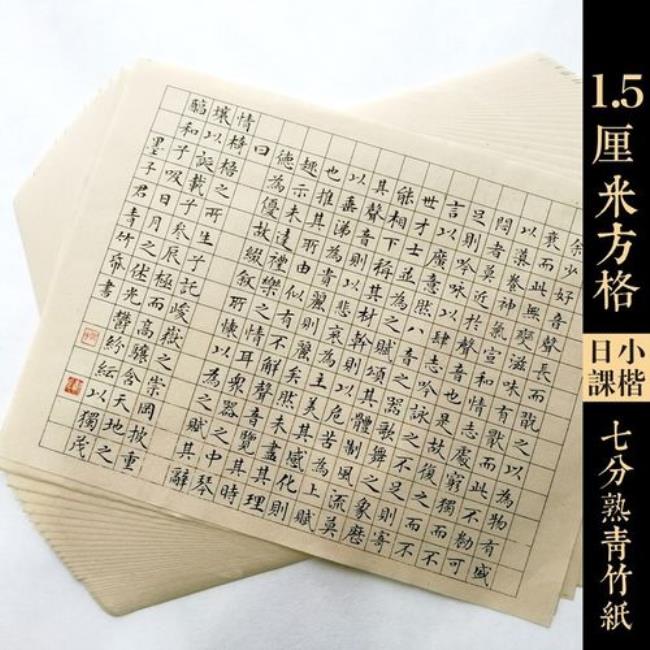 余少好音聲長而翫之以為物有盛
衰而此無變滋味有猒而此不勌可
以導養神氣宣和情志處窮獨而不
悶者莫近於音聲也是故復之而不
足則吟詠以肆志吟詠之不足則寄
言以廣意然八音之器歌舞之象歷
世才士並為之賦頌其體制風流莫
能相下稱其材幹則以危苦為上賦
其聲音則以悲哀為主美其感化則
以垂涕為貴麗則麗矣然未盡其理
也推其所由似有不解音聲覽其時
趣示未達禮樂之情耳眾器之中琴
德為優故綴敘所懷以為之賦其辭
曰
情椅梧之所生子託峻嶽之崇岡披重
壤以誕載子參辰極而高驤含天地之
和子吸日月之休光鬱紛紜以獨茂
墨子君青竹紙書
1.5厘米方格
小楷
日課
七分熟青竹紙